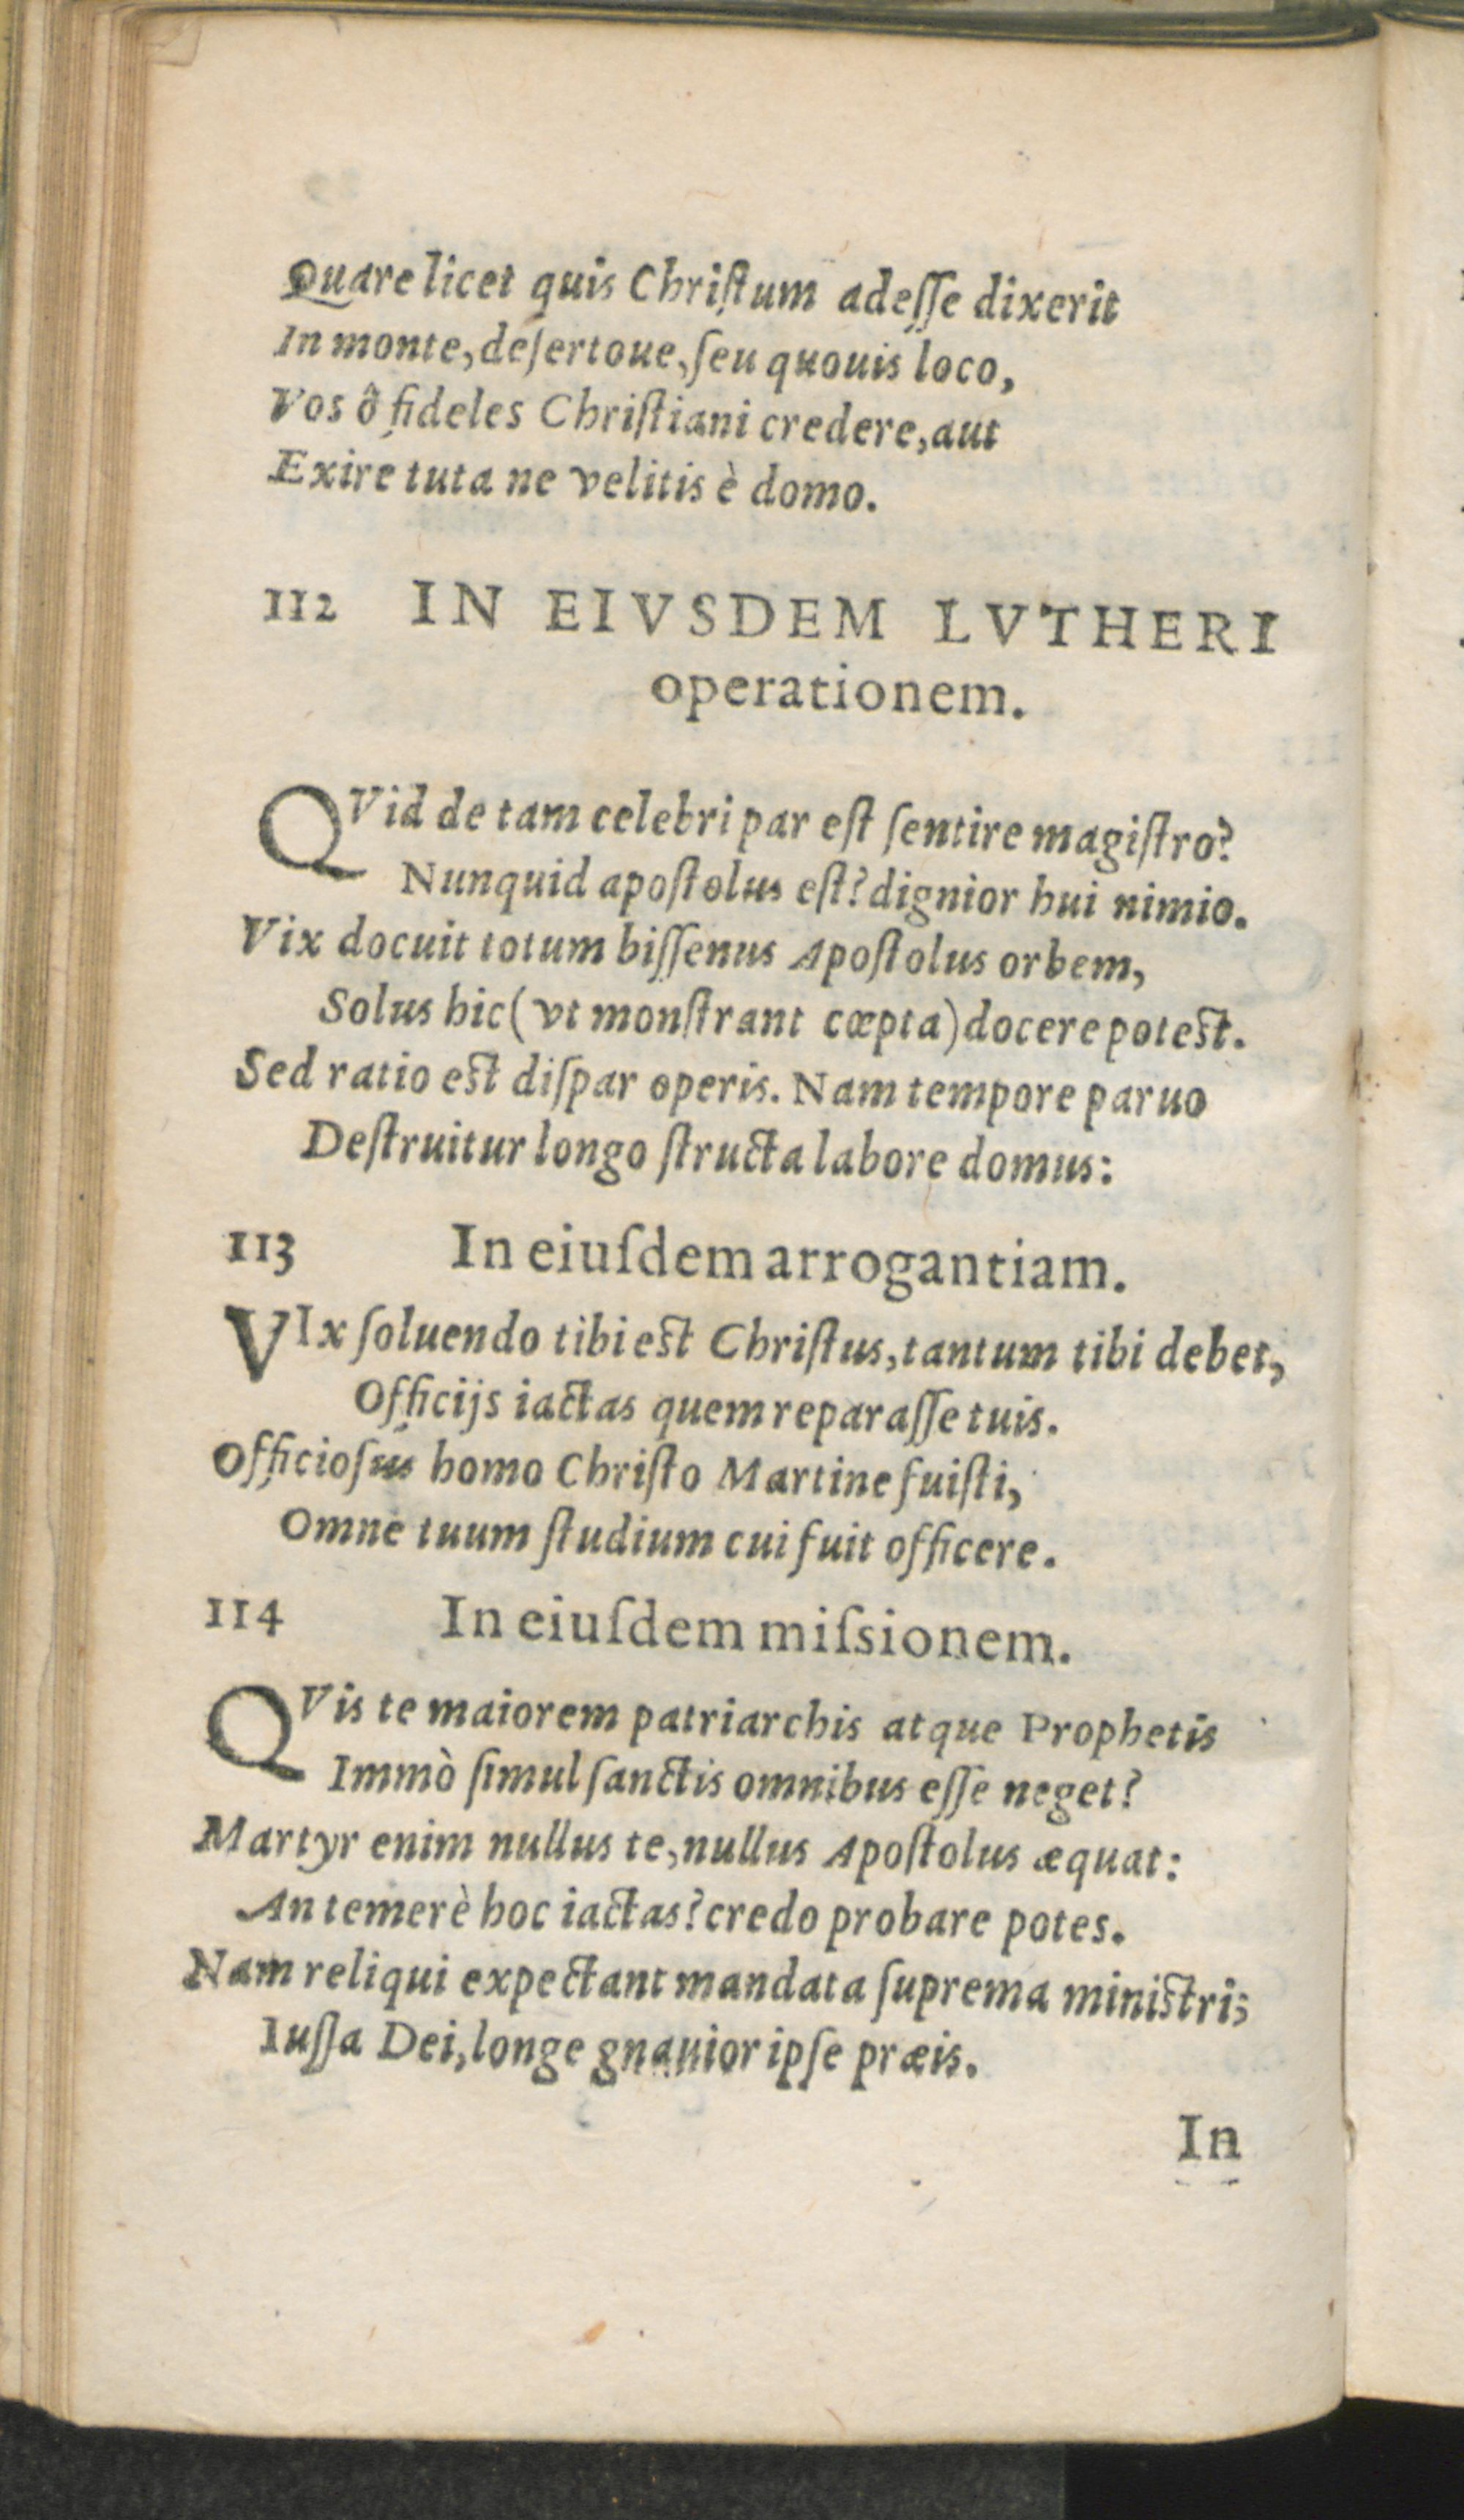 Quare licet quis Chriſtum adeſſe dixerit
In monte, deſertoue, ſeu quouis loco,
Vos ô fideles Chriſtiani credere, aut
Exire tuta ne velitis è domo.
112 IN EIVSDEM LVTHERI
operationem.
QVid de tam celebri par eſt ſentire magiſtro?
Nunquid apoſtolus eſt? dignior hui nimio.
Vix docuit totum biſſenus Apoſtolus orbem,
Solus hic (vt monſtrant cœpta) docere poteſt.
Sed ratio eſt diſpar operis. Nam tempore paruo
Deſtruitur longo ſtructa labore domus:
113 In eiuſdem arrogantiam.
VIx ſoluendo tibi eſt Chriſtus, tantum tibi debet,
Officijs iactas quem reparaſſe tuis.
Officioſus homo Chriſto Martine fuiſti,
Omne tuum ſtudium cui fuit officere.
114 In eiuſdem miſsionem.
QVis te maiorem patriarchis atque Prophetis
Immò ſimul ſanctis omnibus eſſe neget?
Martyr enim nullus te, nullus Apoſtolus æquat:
An temerè hoc iactas? credo probare potes.
Nam reliqui expectant mandata ſuprema miniſtri;
Iuſſa Dei, longe gnauior ipſe præis.
In